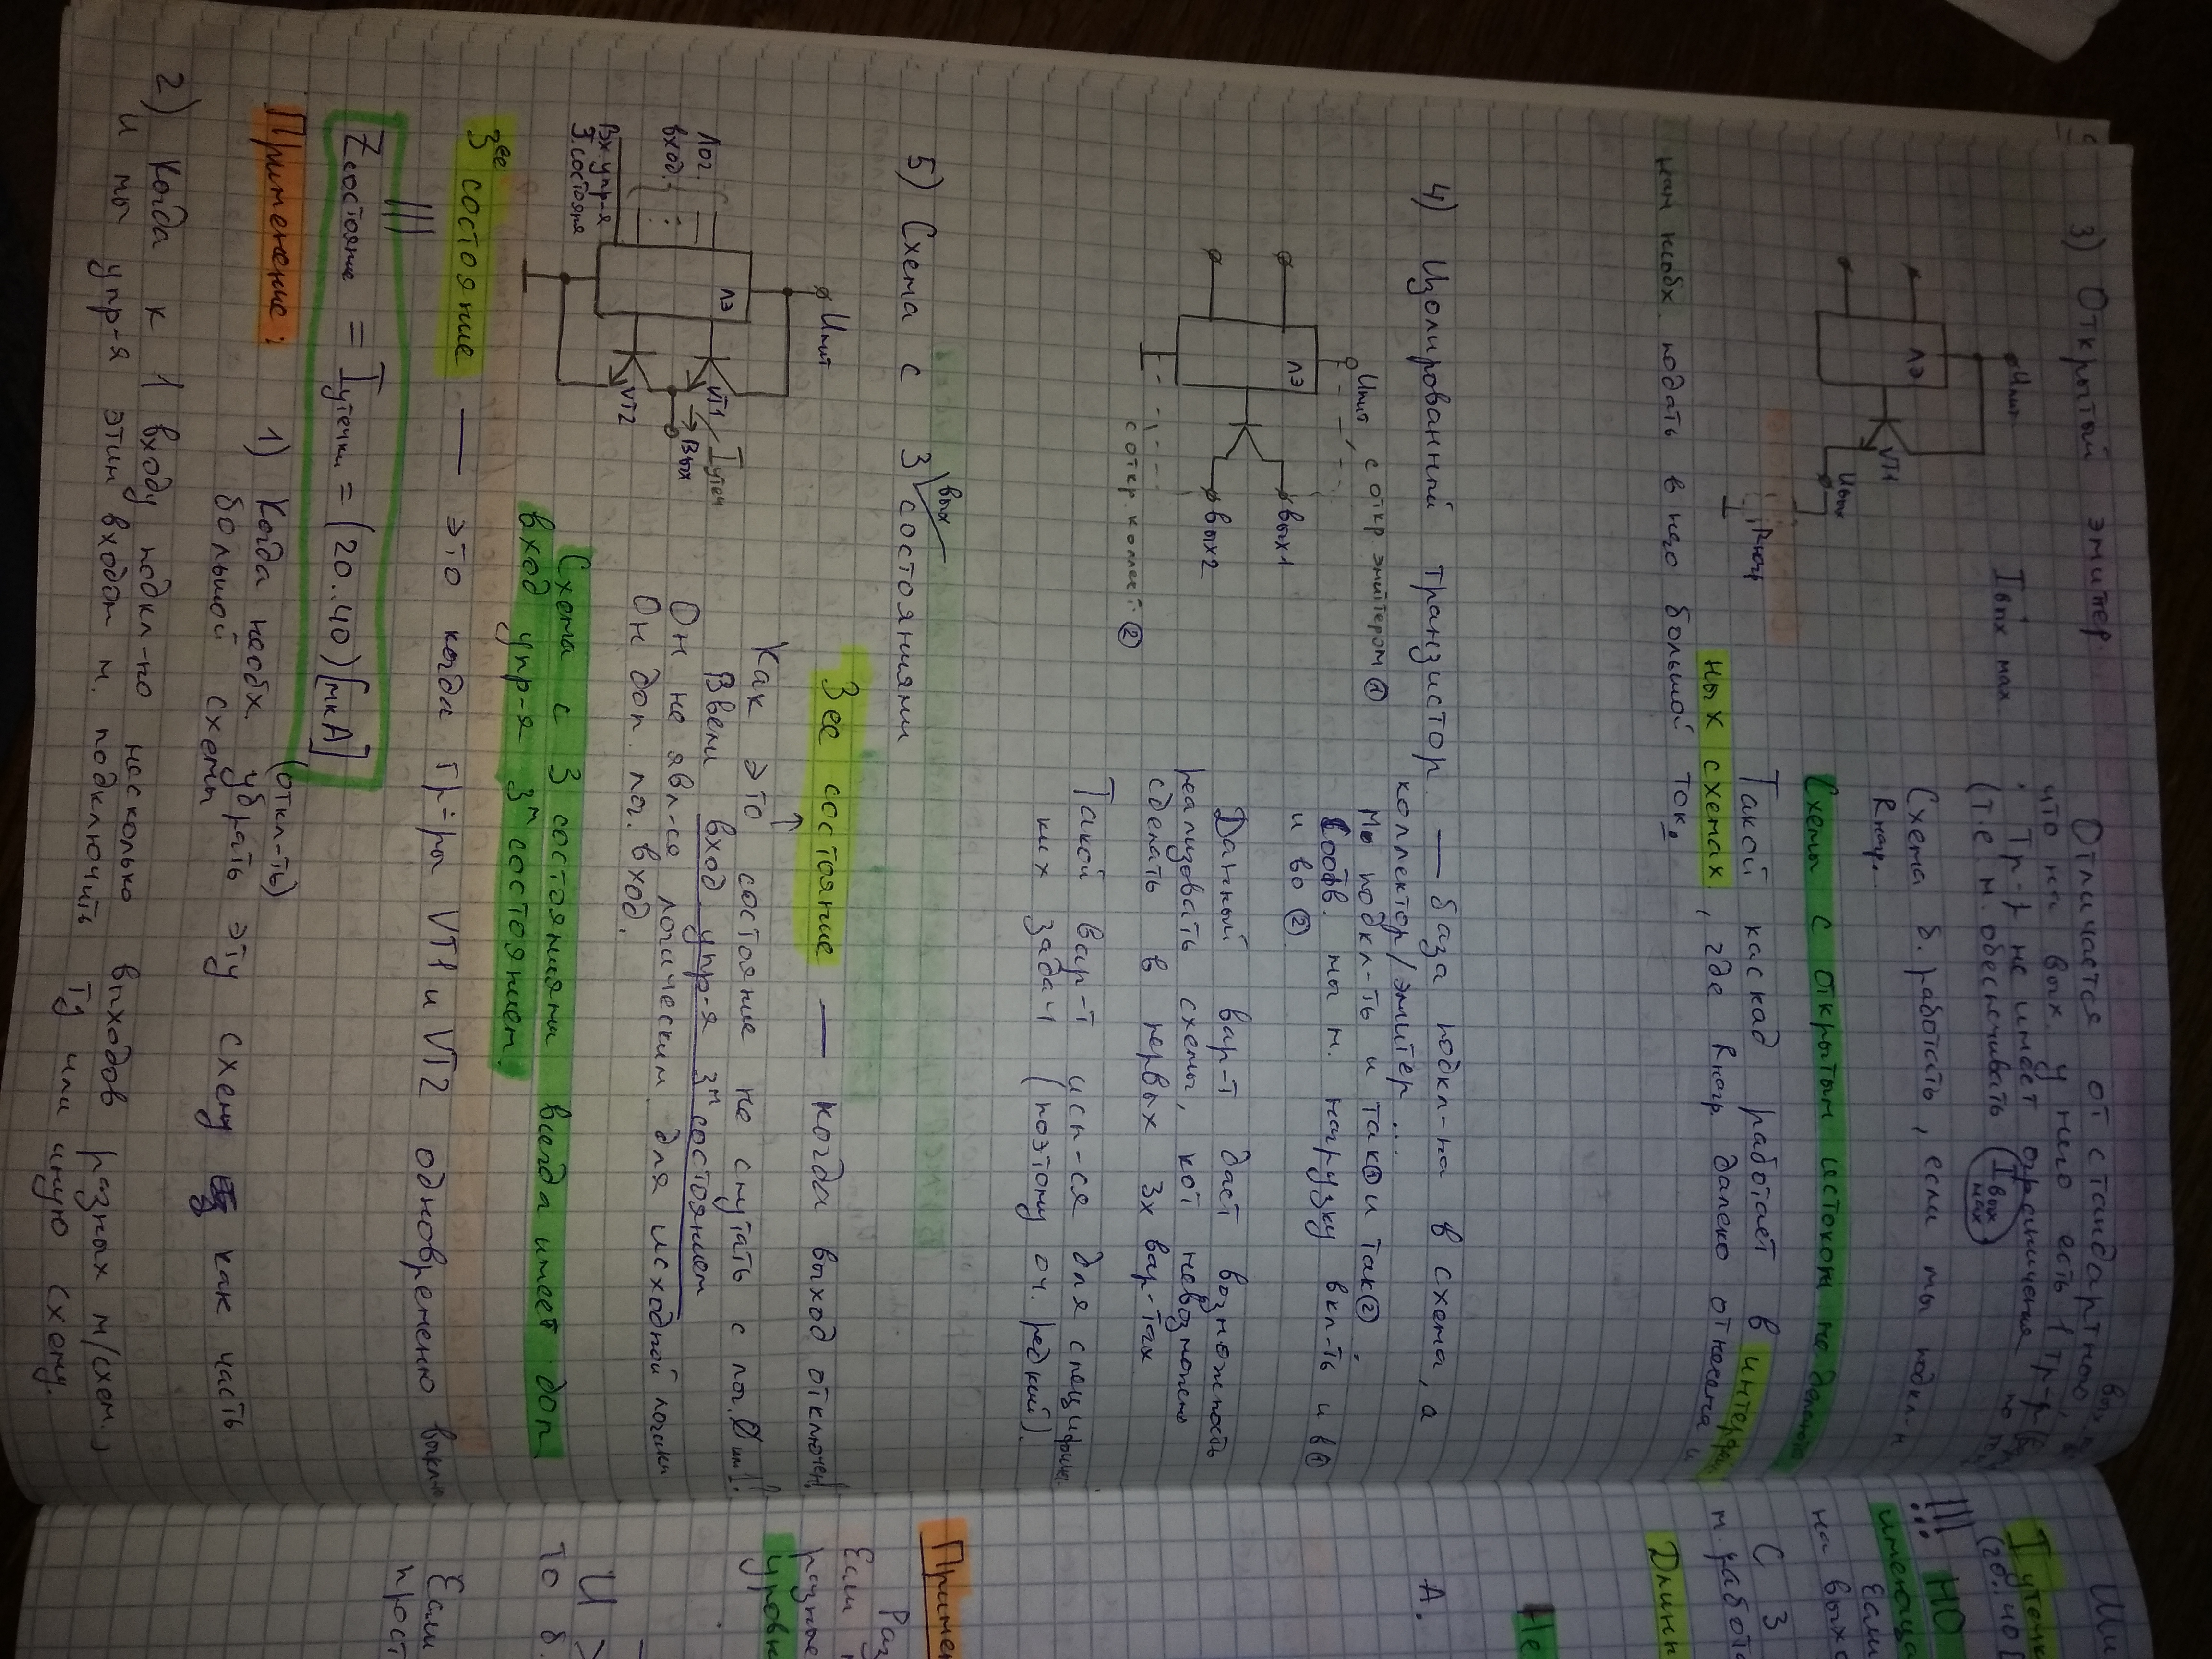 3) Открытый эмитер.
Uпит
ЛЭ
VT1
Uвых
Rнагр
Iвых мах
Отличается от стандартного
что на вых у него есть 1 тр-р
тр-р не имеет ограничения по
(т.е м. обеспечивать (Iвых мах)
Схема б. работать, если мы подкл-м
Rнагр.
Схемы с открытым истоком не
Такой каскад работает в
ных схемах, где Rнагр далеко отнесена и
нам необх. подать в него больший ток.
4) Изолированный транзистор — база подкл-на в схема, а
коллектор/эмитер
Uпит с откр эмитером ①
ЛЭ
вых1
вых2
с откр. коллект. ②
Мы подкл-ть и так① и так②
Соотв. мы м. нагрузку вкл-ть и в①
и во ②.
Данный вар-т даёт возможность
реализовать схемы, кот невозможно
сделать в первых 3х вар-тах
Такой вар-т исп-ся для специфич.
ких задач (поэтому оч. редкий).
5) Схема с 3 вых состояниями
Uпит
ЛЭ
VT1
Iутеч
Вых
VT2
Лог.
вход.
Вх.упр-я
3.состояня
3ее состояние — когда выход отключен!
Как это состояние не спутать с лог. 0
Ввели вход упр-я 3м состоянием
Он не явл-ся логическим для исходной логики
Он доп. лог. вход.
Схема с 3 состояниями всегда имеет доп
вход упр-я 3м состоянием.
3ее состояние — это когда тр-ры VT1 и VT2 одновременно выкл
Zсостояние = Iутечки = (20..40)[мкА]
Применение:
1) Когда необх. убрать (откл-ть) эту схему как часть
большой схемы
2) Когда к 1 входу подкл-но несколько выходов разных м/схем.,
и мы упр-я этим входом м. подключить ту или иную схему.
Ши
Iутечк
(20..40
!!! НО
имеюща
Если
на выхо
С 3
м.работ
Длинн
Не
А.
Примен
Раз
Если
разные
уровн
И
То б.
Если
прост